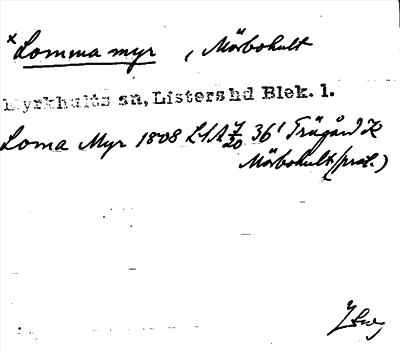 × Lomma myr, Mörbohult
Myrkhults sn, Listers hd Blek. l.
Loma Myr 1808 LSA 7/20 36' Trägård K
Mörbohult (prot.)